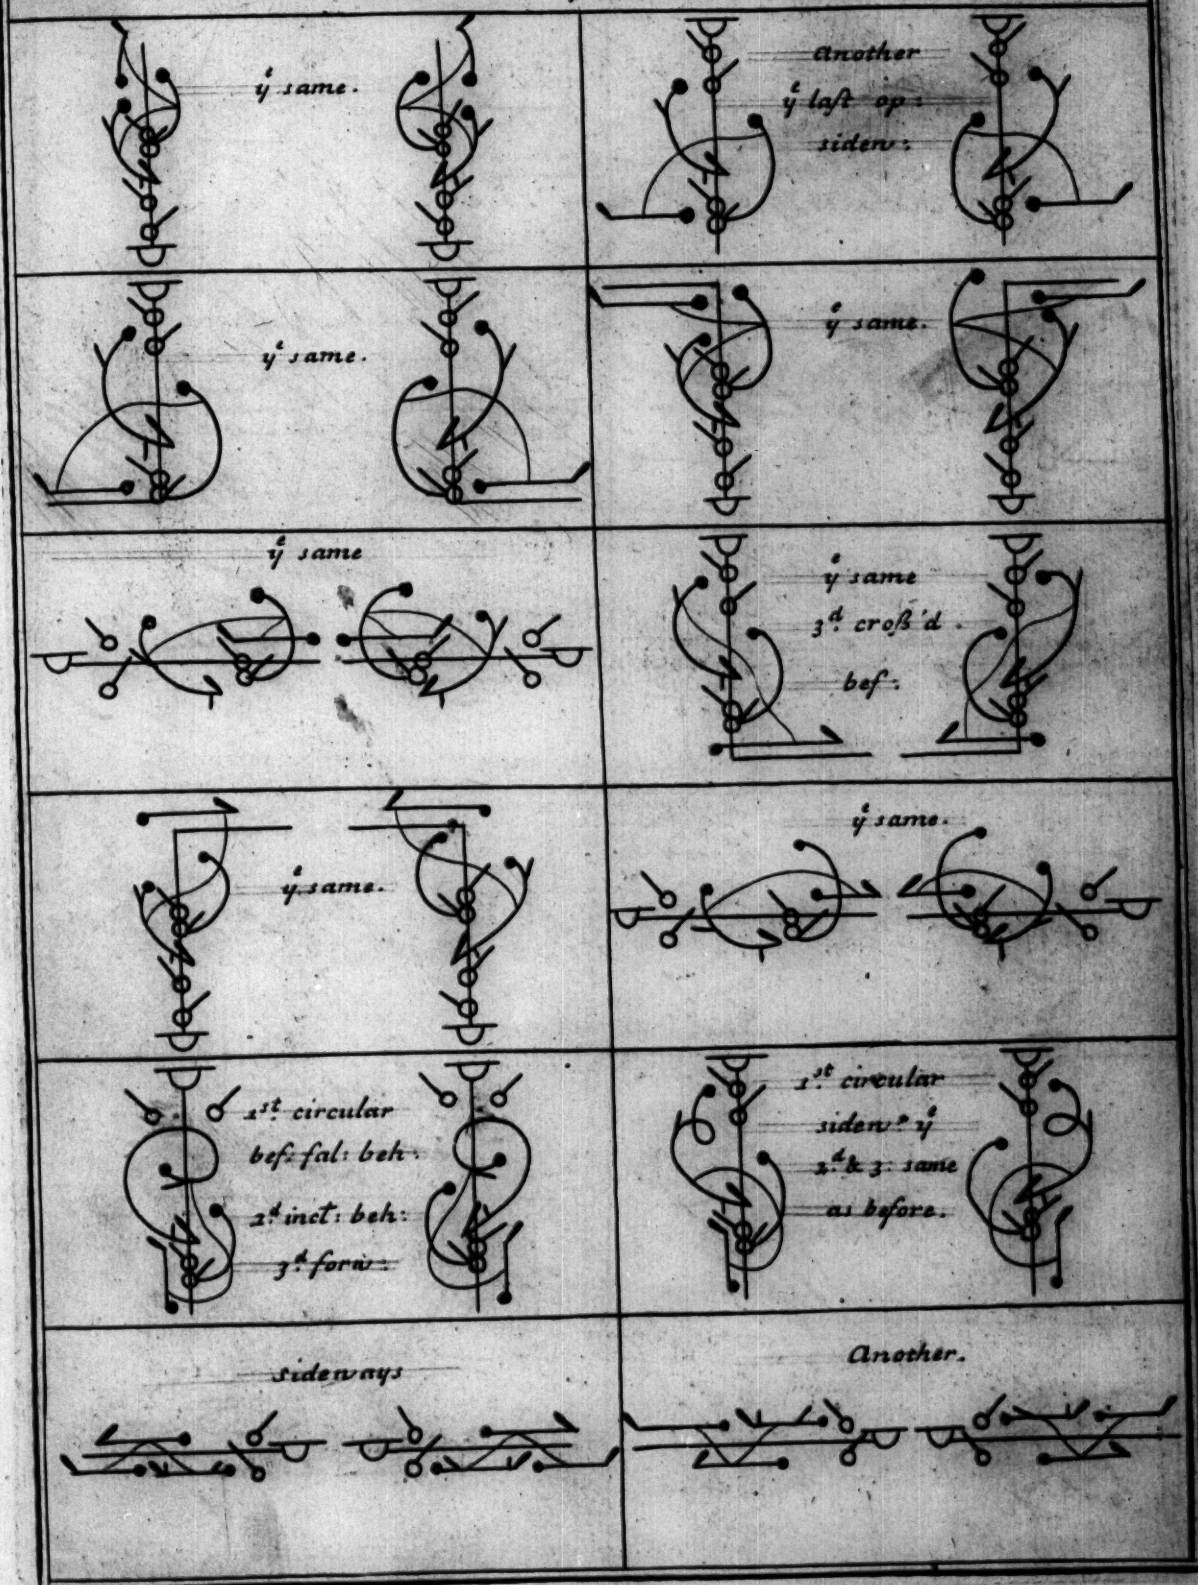 yͤ same.
Another
yͤ last op:
sidew:
yͤ same.
yͤ same.
yͤ same
yͤ same
3ᵈ. cross'd
bef:
yͤ same.
yͤ same.
1ˢᵗ. circular
bef: fal: beh:
2ᵈ. inct: beh:
3ᵈ. forw:
1ˢᵗ. circular
sidew: yͤ
2ᵈ. & 3: same
as before.
sideways
Another.